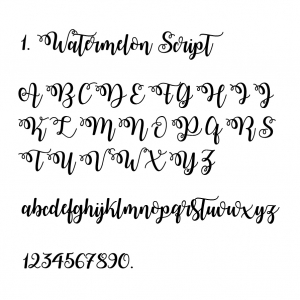 1. Watermelon Script
A B C D E F G H I J
K L M N O P Q R S
T U V W X Y Z
abcdefghijklmnopqrstuvwxyz
1234567890.